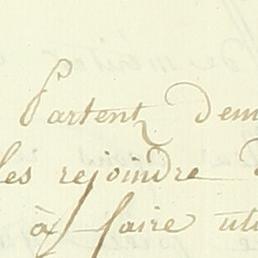 Partent dem
les rejoindre
à faire uti